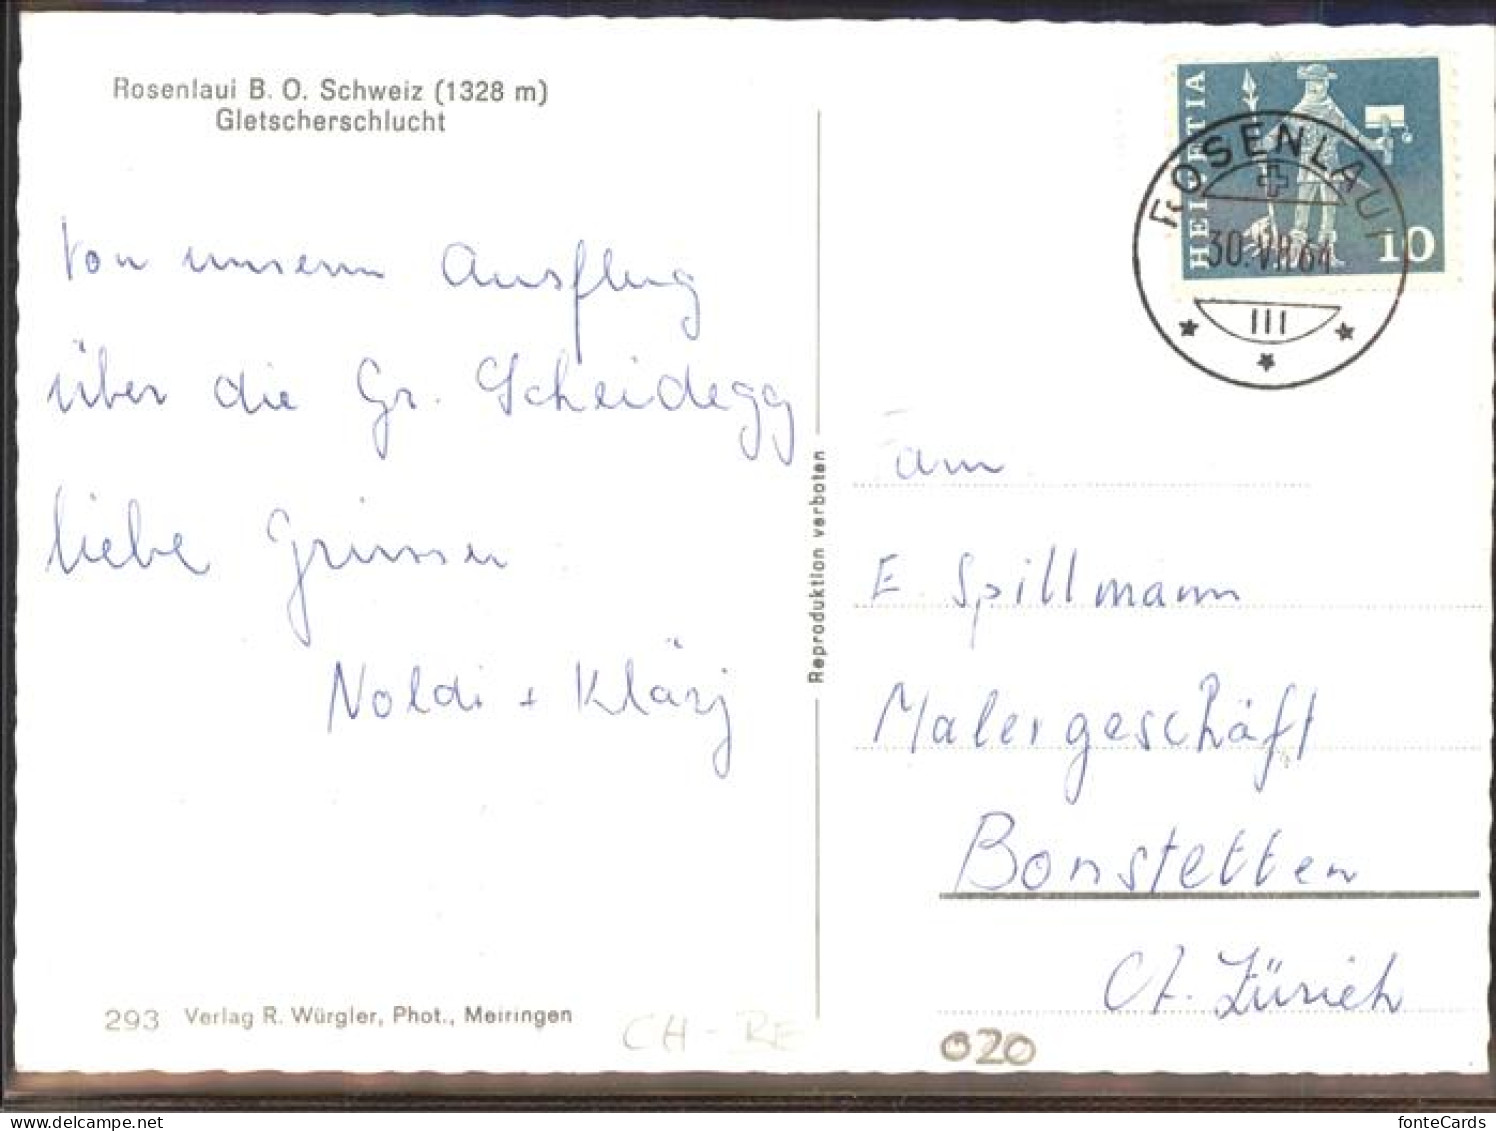 Rosenlaui B. O. Schweiz (1328 m)
Gletscherschlucht
HELVETIA
10
ROSENLAUI
30.VII.64
III
Von unserm Ausflug
über die Gr. Scheidegg
liebe Grüsse
Noldi + Kläsj
Reproduktion verboten
Fam
E. Spillmann
Malergeschäft
Bonstetten
Ct. Zürich
293 Verlag R. Würgler, Phot., Meiringen
CH - BE
020
fonteCards